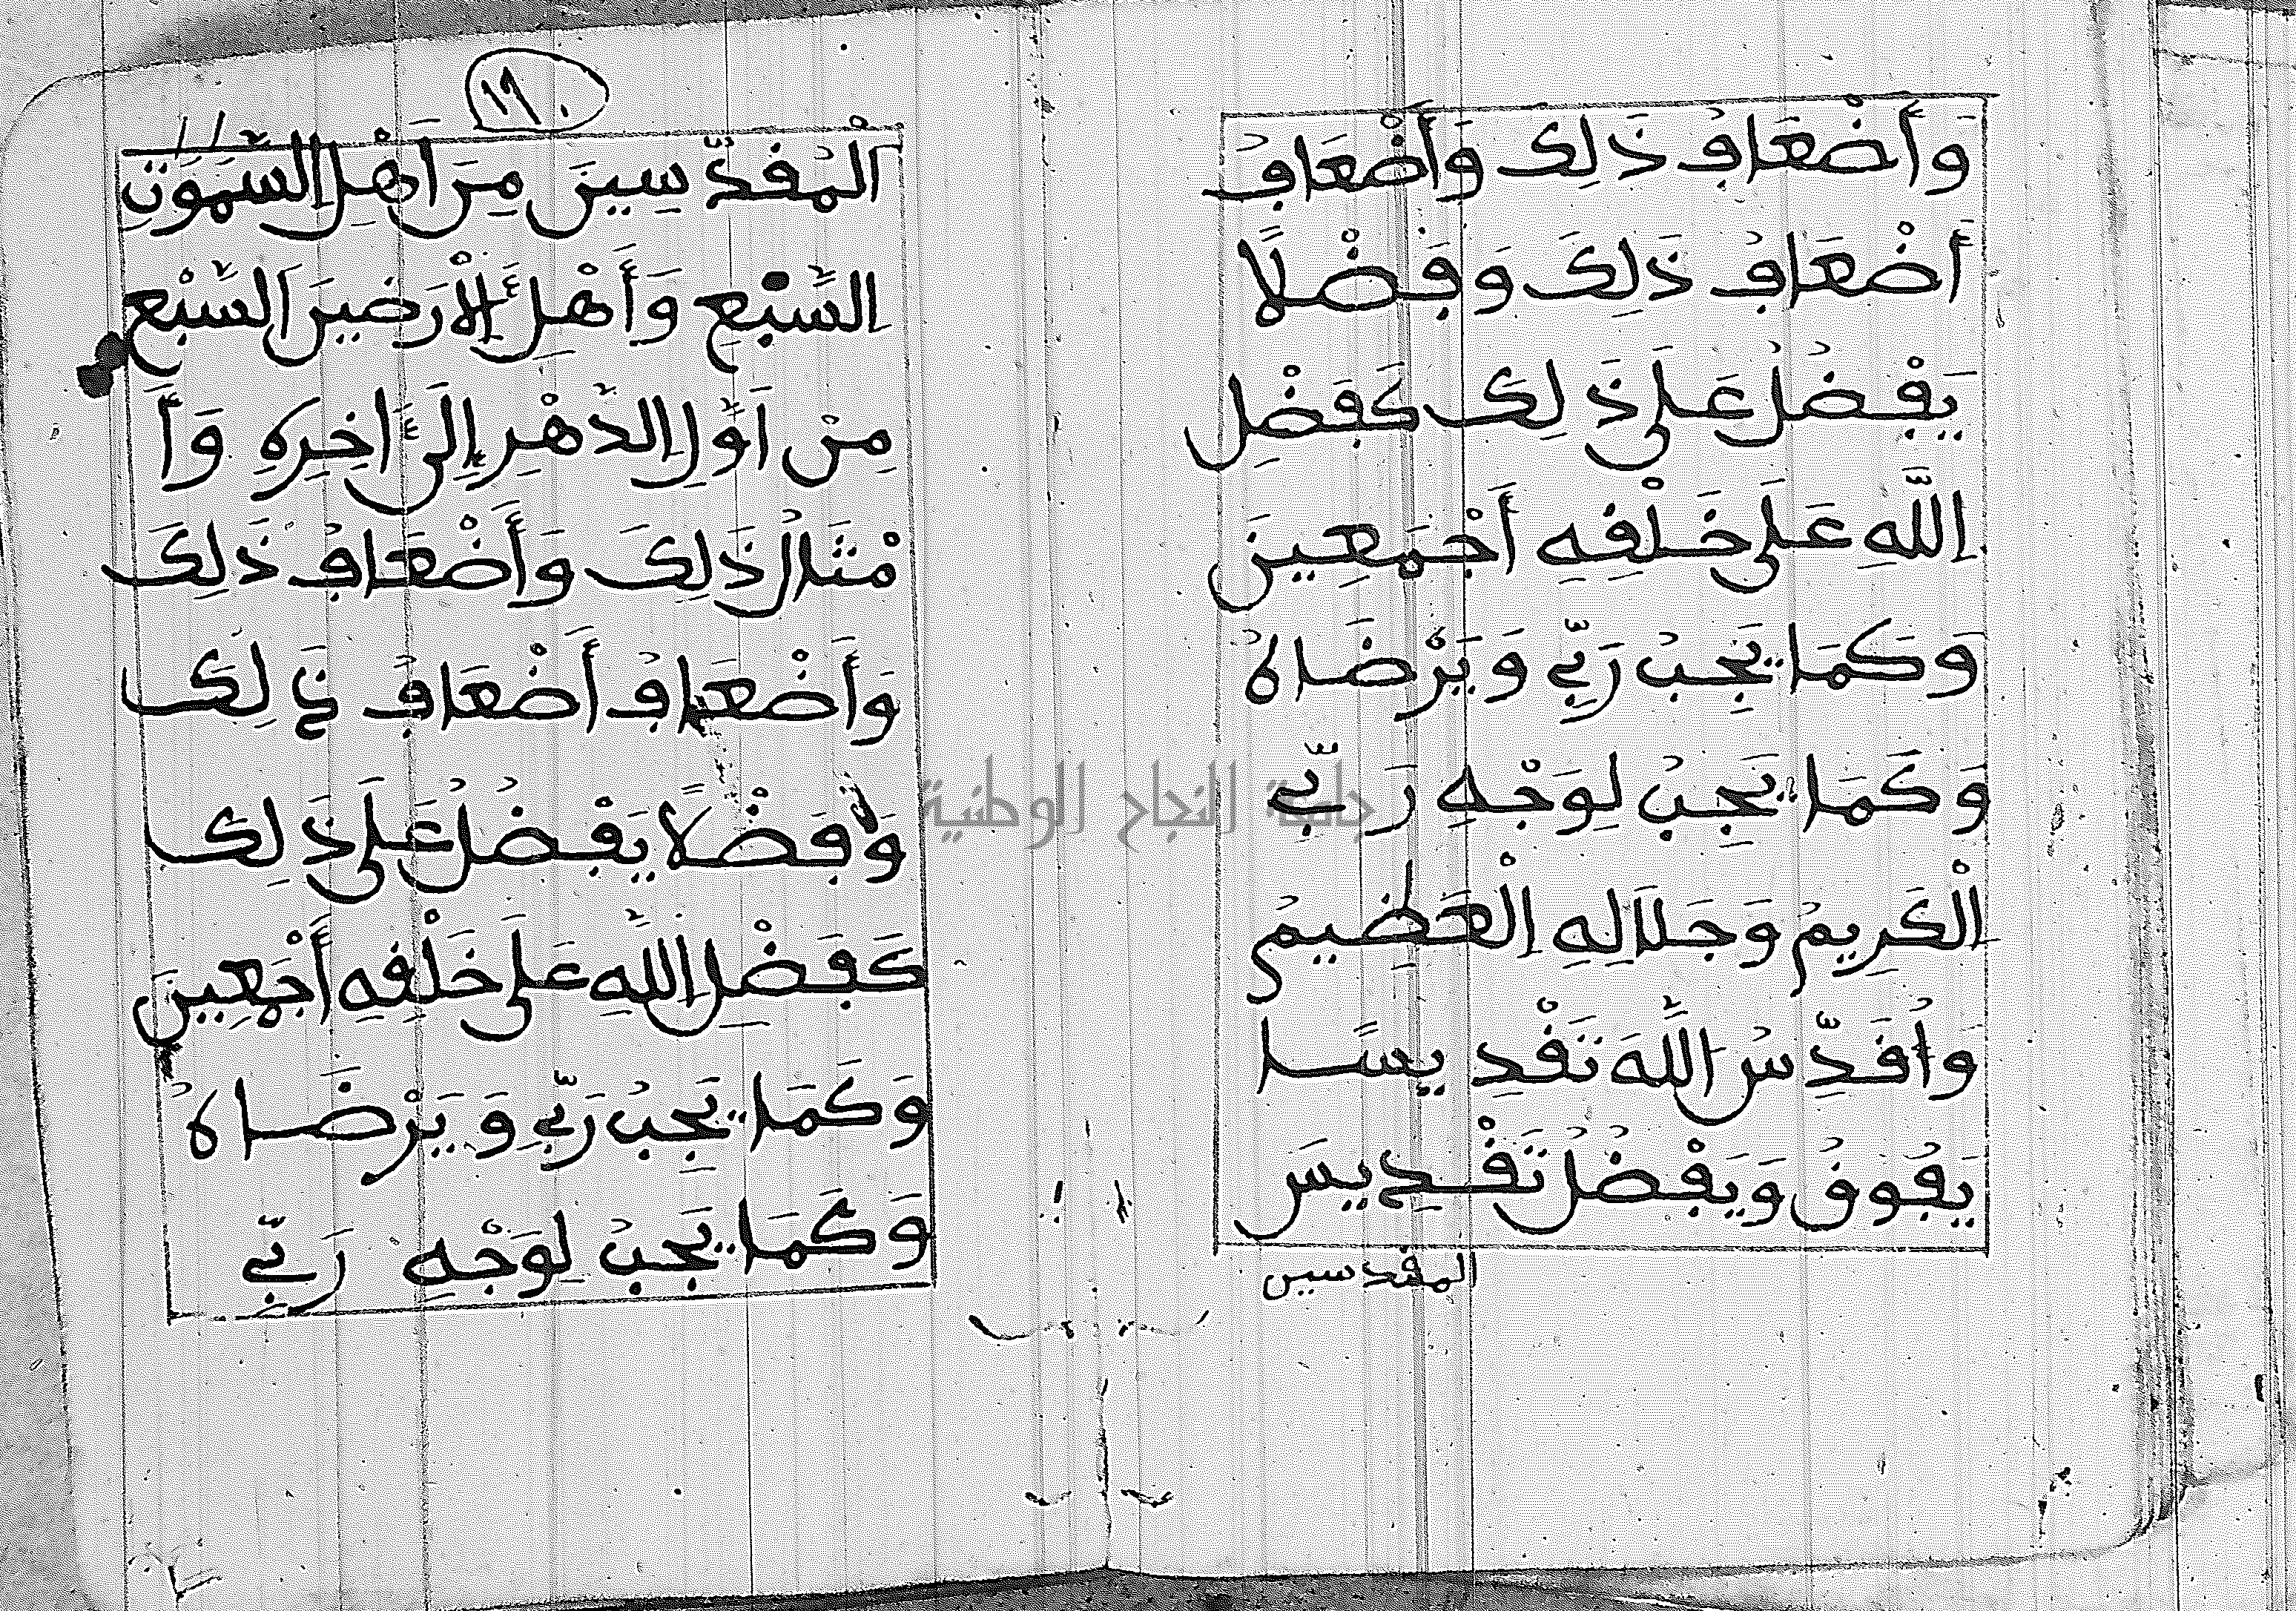 وَأَضْعَافُ ذَلِكَ وَأَضْعَافُ
أَضْعَافِ ذَلِكَ وَفَضْلًا
يَفْضُلُ عَلَى ذَلِكَ كَفَضْلِ
اللَّهِ عَلَى خَلْقِهِ أَجْمَعِينَ
وَكَمَا يُحِبُّ رَبِّي وَيَرْضَاهُ
وَكَمَا يَجِبُ لِوَجْهِ رَبِّي
الْكَرِيمِ وَجَلَالِهِ الْعَظِيمِ
وَأُقَدِّسُ اللَّهَ تَقْدِيسًا
يَفُوقُ وَيَفْضُلُ تَقْدِيسَ
المقدسين
١٦٠
الْمُقَدِّسِينَ مِنَ أَهْلِ السَّمَوَتِ
السَّبْعِ وَأَهْلِ الْأَرَضِينَ السَّبْعِ
مِنْ أَوَّلِ الدَّهْرِ إِلَى آخِرِهِ وَأَ
مْثَالُ ذَلِكَ وَأَضْعَافُ ذَلِكَ
وَأَضْعَافُ أَضْعَافِ ذَلِكَ
وَفَضْلًا يَفْضُلُ عَلَى ذَلِكَ
كَفَضْلِ اللَّهِ عَلَى خَلْقِهِ أَجْمَعِينَ
وَكَمَا يُحِبُّ رَبِّي وَيَرْضَاهُ
وَكَمَا يَجِبُ لِوَجْهِ رَبِّي
جامعة النجاح الوطنية